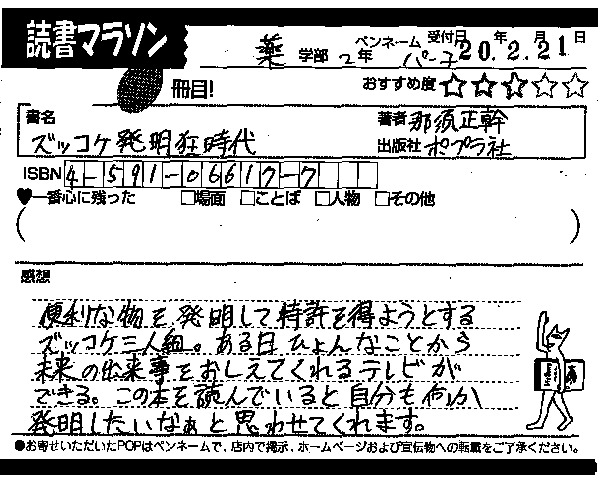 読書マラソン
薬 学部 2 年 ペンネーム パー子 受付日 20 年 2 月 21 日
冊目! おすすめ度 ☆☆☆☆☆
書名 ズッコケ発明狂時代
著者 那須正幹
出版社 ポプラ社
ISBN 4-591-06617-7
♥一番心に残った □場面 □ことば □人物 □その他
( )
感想
便利な物を発明して特許を得ようとする
ズッコケ三人組。ある日ひょんなことから
未来の出来事をおしえてくれるテレビが
できる。この本を読んでいると自分も何か
発明したいなぁと思わせてくれます。
●お寄せいただいたPOPはペンネームで、店内で掲示、ホームページおよび宣伝物への転載をご了承ください。